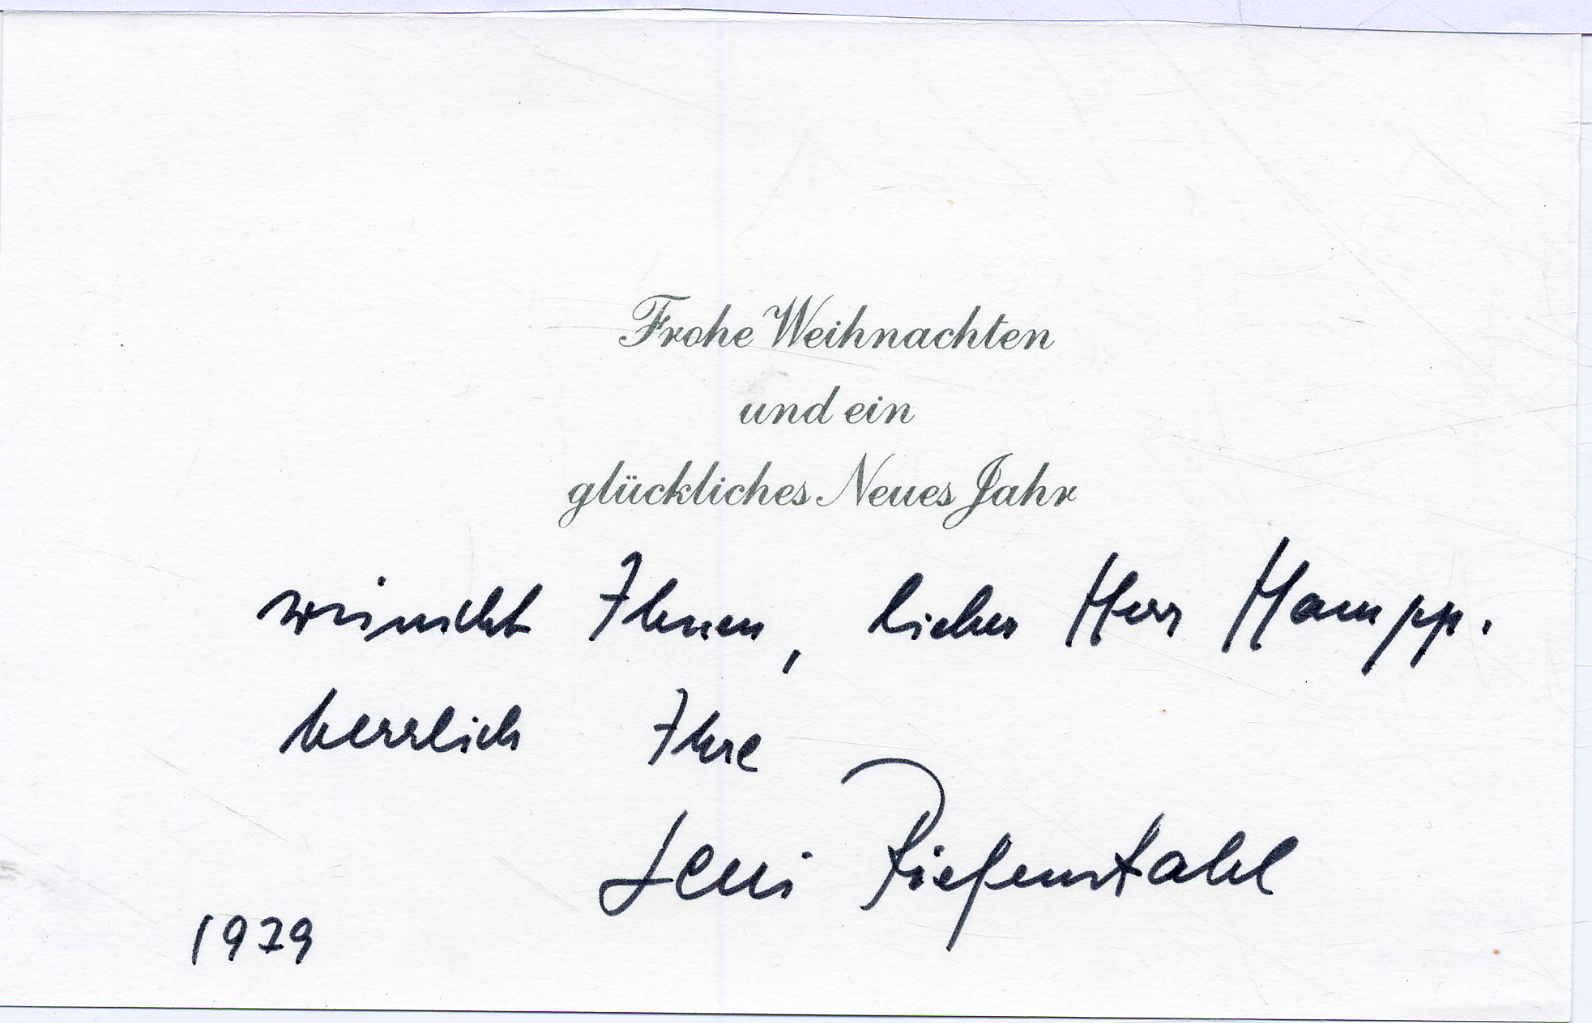 Frohe Weihnachten
und ein
glückliches Neues Jahr
wünscht Ihnen, lieber Herr Hampp.
herzlich Ihre
Leni Riefenstahl
1979